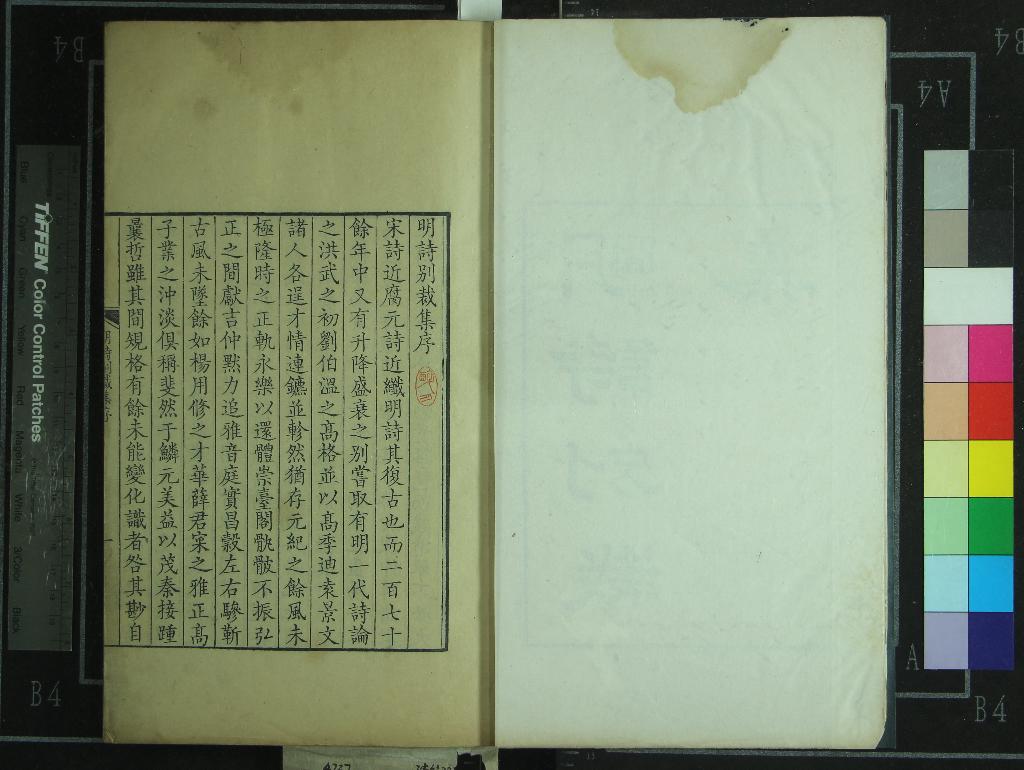 明詩別裁集序
宋詩近腐元詩近纖明詩其復古也而二百七十
餘年中又有升降盛衰之别嘗取有明一代詩論
之洪武之初劉伯溫之高格並以高季迪袁景文
諸人各逞才情連鑣並軫然猶存元紀之餘風未
極隆時之正軌永樂以還體崇臺閣骫骳不振弘
正之間獻吉仲黙力追雅音庭實昌穀左右驂靳
古風未墜餘如楊用修之才華薛君寀之雅正高
子業之沖淡俱稱斐然于鱗元美益以茂秦接踵
曩哲雖其間規格有餘未能變化識者咎其尠自
明詩別裁集序
一
B4
B4
A4
A
B4
B4
TIFFEN Color Control Patches
Blue
Cyan
Green
Yellow
Red
Magenta
White
3/Color
Black